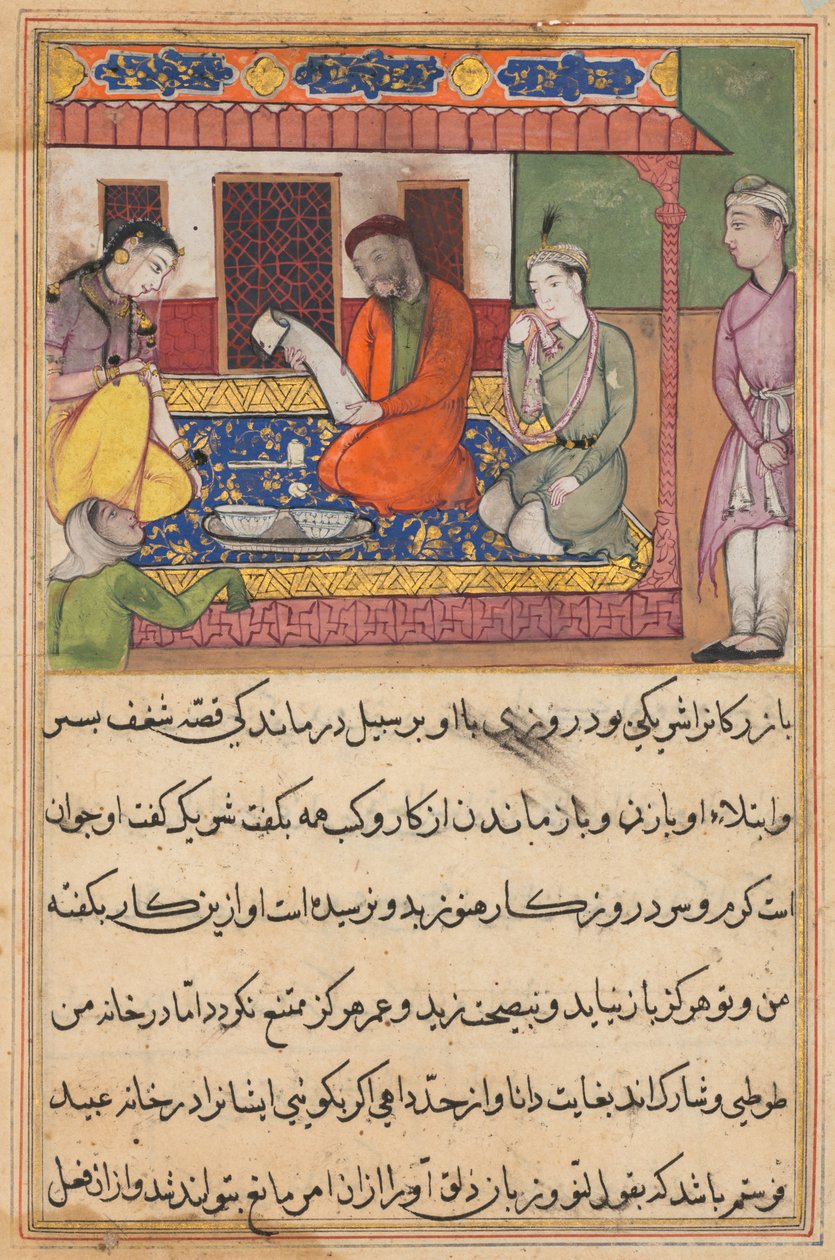 بازرکانرا شریکی بود روزی با او بر سبیل درماندکی قصّه شغف بسر
وابتلاء او با زن وبازماندن از کار وکسب همه بکفت شریک کفت او جوان
است کرم وسرد روزکار هنوز ندیده ونرسیده است او ازین کار بکفته
من وتو هرکز باز نیاید ونبصیحت زید وعمر هرکز ممتنع نکردد امّا در خانه من
طوطی وشارک اند بغایت دانا واز حدّ داهی اکر بکوئی ایشانرا در خانه عبید
فرستم باشد که بقول لیّن وزبان ذلق او را ازان امر مانع بتوانند شد وازان فعل